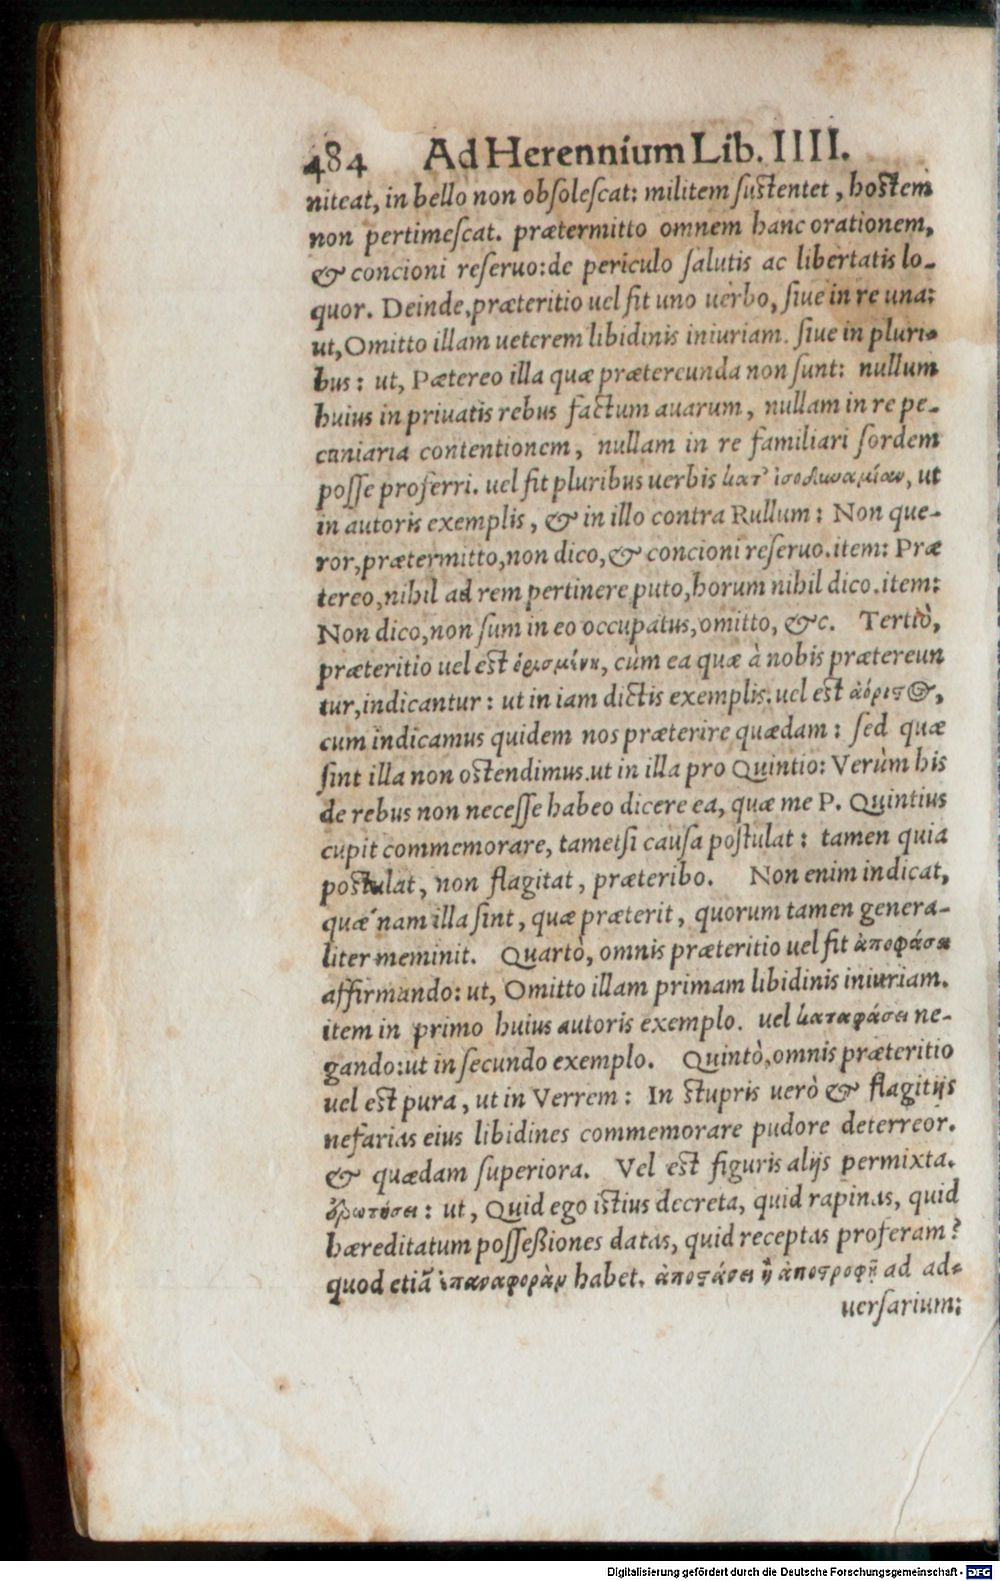 484 Ad Herennium Lib. IIII.
niteat, in bello non obsolescat: militem sustentet, hostem
non pertimescat. prætermitto omnem hanc orationem,
& concioni reseruo: de periculo salutis ac libertatis lo-
quor. Deinde, præteritio uel fit uno uerbo, siue in re una:
ut, Omitto illam ueterem libidinis iniuriam. siue in pluri-
bus: ut, Pætereo illa quæ prætereunda non sunt: nullum
huius in priuatis rebus factum auarum, nullam in re pe-
cuniaria contentionem, nullam in re familiari sordem
posse proferri. uel fit pluribus uerbis κατ' ἰσοδυναμίαν, ut
in autoris exemplis, & in illo contra Rullum: Non que-
ror, prætermitto, non dico, & concioni reseruo. item: Præ
tereo, nihil ad rem pertinere puto, horum nihil dico. item:
Non dico, non sum in eo occupatus, omitto, &c. Tertiò,
præteritio uel est ὁρισμένη, cùm ea quæ à nobis prætereun
tur, indicantur: ut in iam dictis exemplis. uel est ἀόριστος,
cum indicamus quidem nos præterire quædam: sed quæ
sint illa non ostendimus. ut in illa pro Quintio: Verùm his
de rebus non necesse habeo dicere ea, quæ me P. Quintius
cupit commemorare, tametsi causa postulat: tamen quia
postulat, non flagitat, præteribo. Non enim indicat,
quæ nam illa sint, quæ præterit, quorum tamen genera-
liter meminit. Quartò, omnis præteritio uel fit ἀποφάσει
affirmando: ut, Omitto illam primam libidinis iniuriam.
item in primo huius autoris exemplo. uel καταφάσει ne-
gando: ut in secundo exemplo. Quintò, omnis præteritio
uel est pura, ut in Verrem: In stupris uerò & flagitijs
nefarias eius libidines commemorare pudore deterreor.
& quædam superiora. Vel est figuris alijs permixta.
ἐρωτήσει: ut, Quid ego istius decreta, quid rapinas, quid
hæreditatum possessiones datas, quid receptas proferam?
quod etiã ἐπαναφορὰν habet. ἀποστάσει ἢ ἀποστροφῇ ad ad-
uersarium:
Digitalisierung gefördert durch die Deutsche Forschungsgemeinschaft - DFG